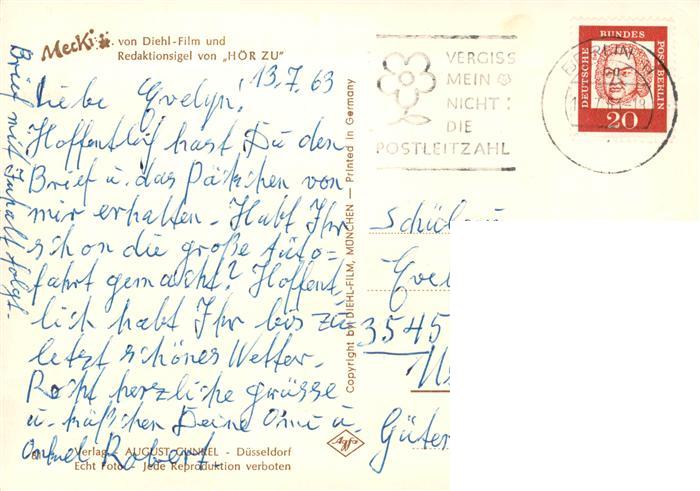 Mecki . von Diehl-Film und
Redaktionsigel von „HÖR ZU"
13.7.63
Liebe Evelyn!
Hoffentlich hast Du den
Brief u. das Päckchen von
mir erhalten. Habt Ihr
schon die große Auto=
fahrt gemacht? Hoffent_
lich habt Ihr bis zu
letzt schönes Wetter.
Recht herzliche grüsse
u. küßchen Deine Omi u.
Onkel Robert.
Brief mit Inhalt folgt.
Verlag - AUGUST GUNKEL - Düsseldorf
Echt Foto - Jede Reproduktion verboten
Copyright by DIEHL-FILM, MÜNCHEN — Printed in Germany
Agfa
VERGISS
MEIN
NICHT
DIE
POSTLEITZAHL
BERLIN
DEUTSCHE BUNDESPOST BERLIN
20
Schüler
Eve
3545
Güter